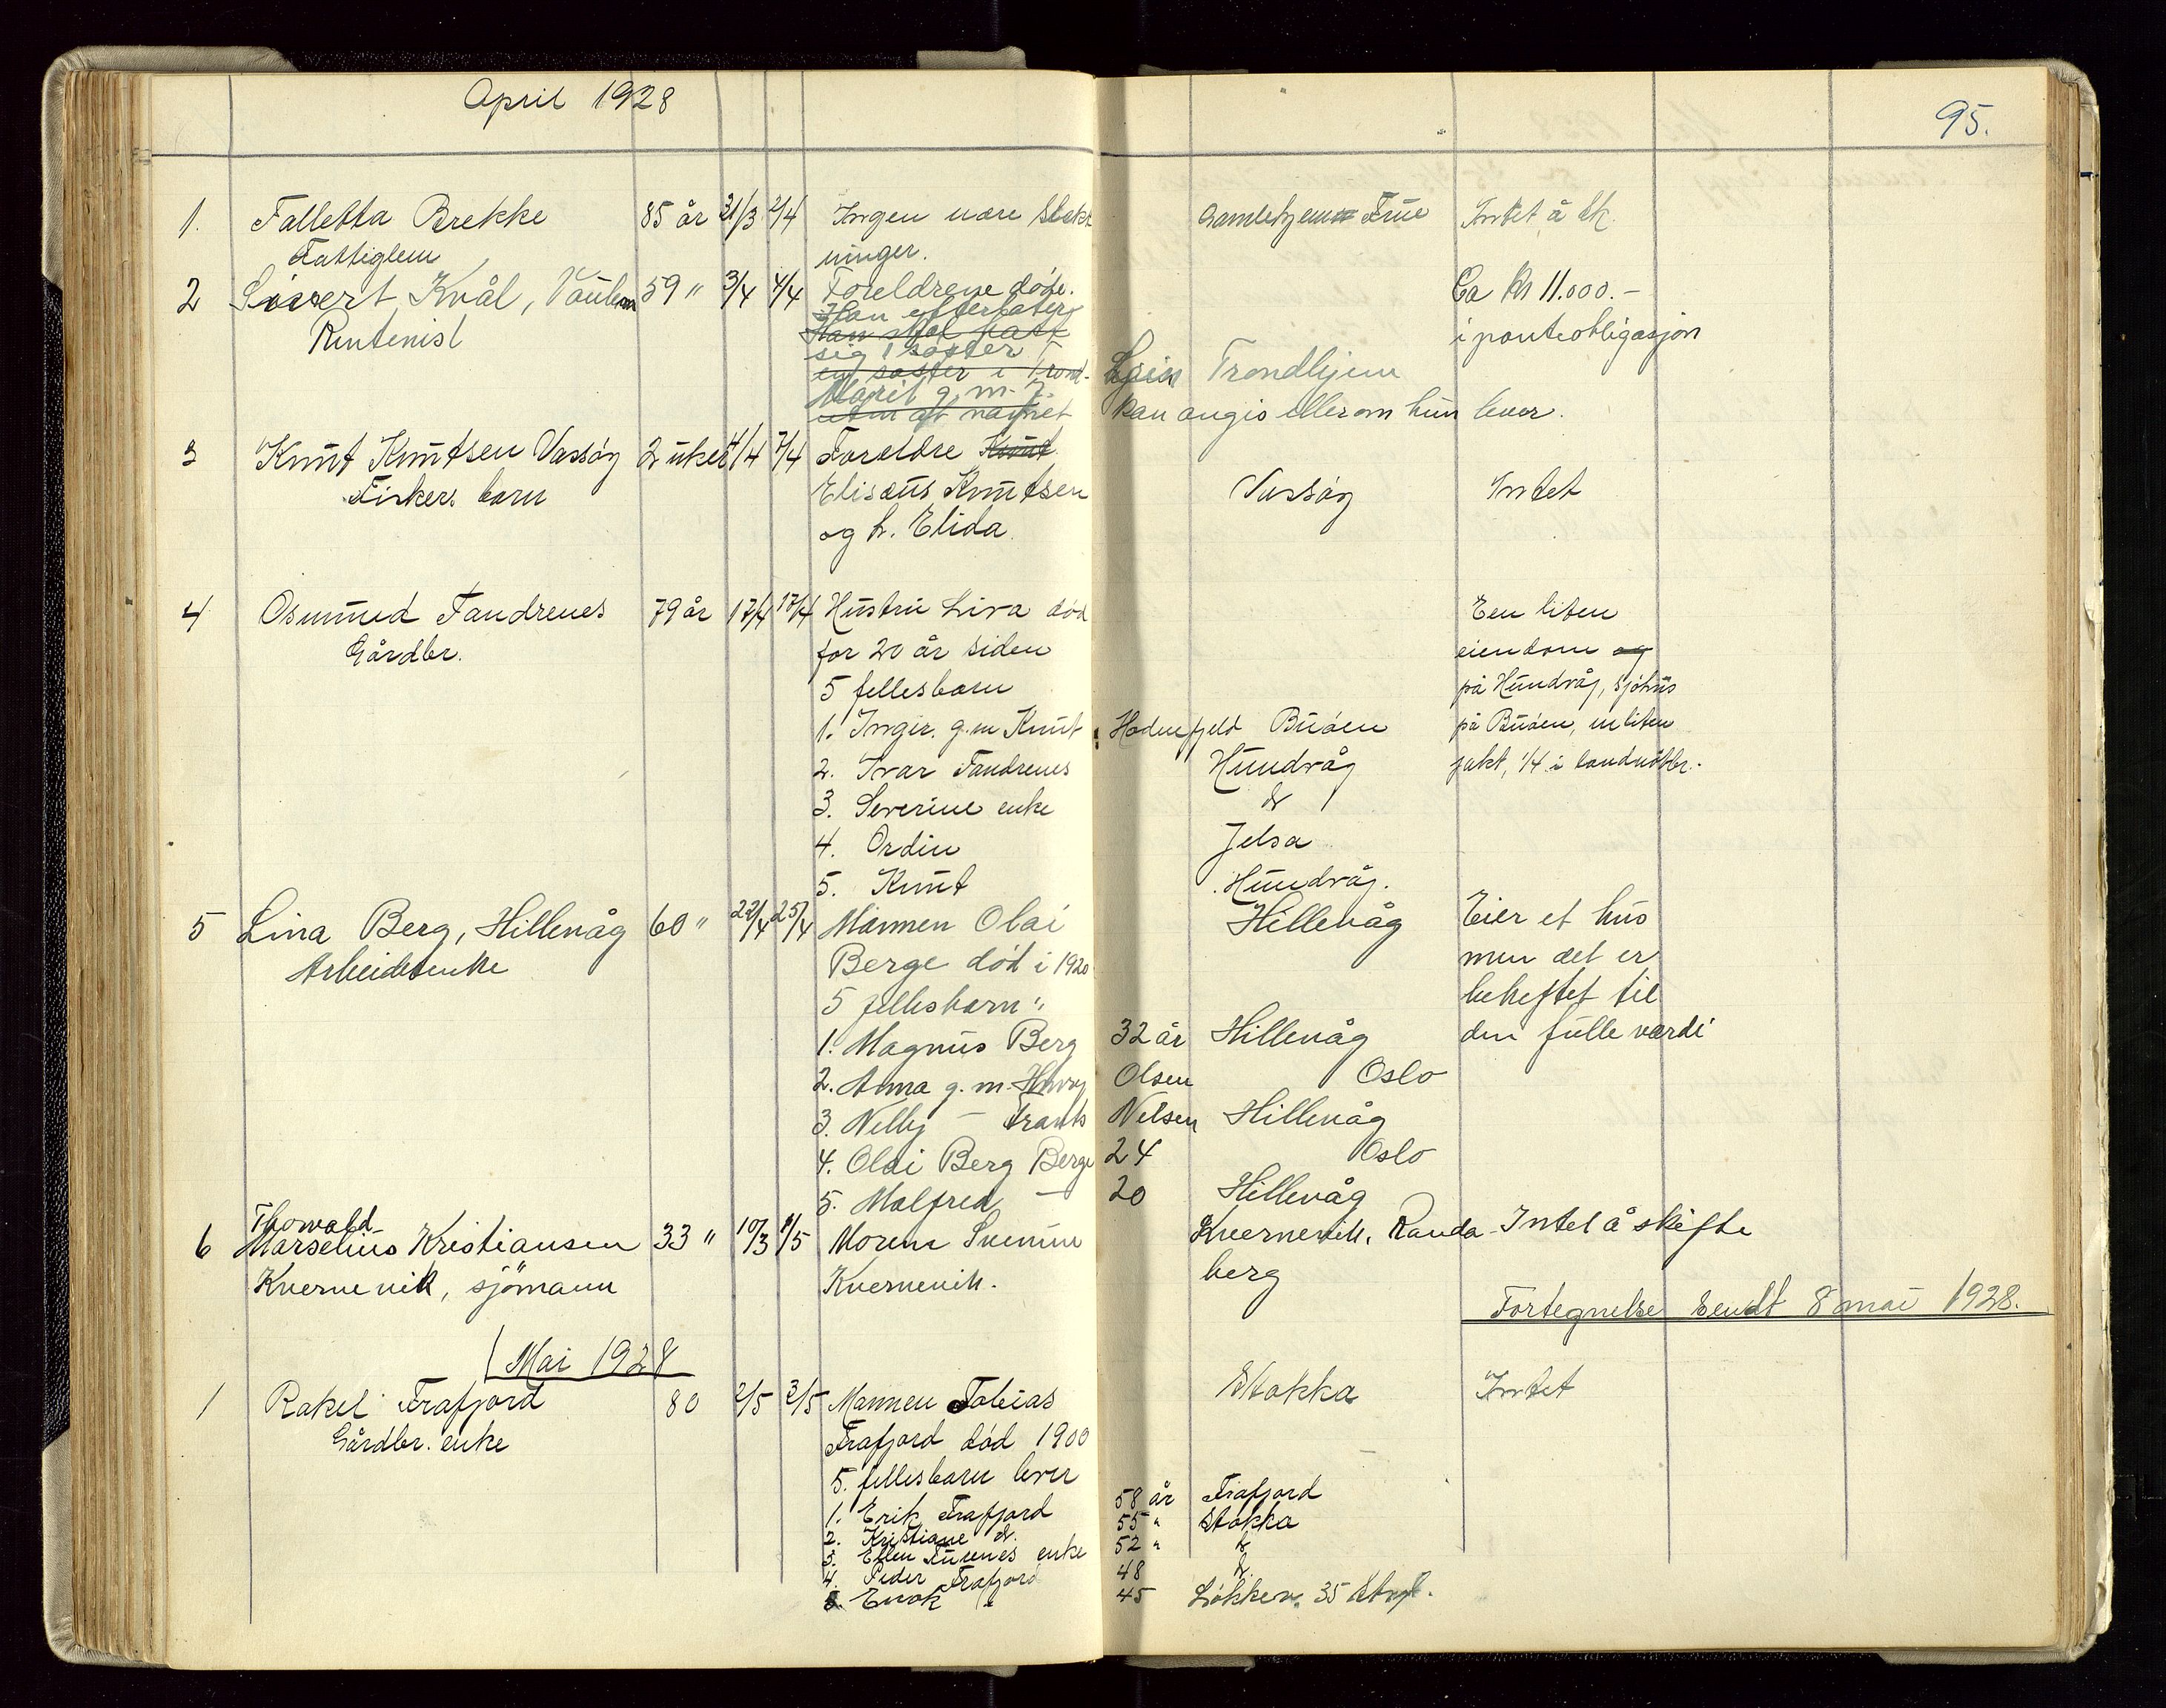 April 1928
95.
1. Falletta Brekke 85 år 31/3 2/4 Ingen nære slekt Gamlehjem Tue Intet å sk.
Fattiglem ninger.
2 Sivert Kvål, 59 " 3/4 4/4 Foreldrene døde. Ca kr 11.000.-
Han efterlater
Rentenist Han skal hatt i panteobligasjon
sig 1 søster
en søster i Trond- Trondhjem
Marit g. m.
uten at navnet kan angis eller om hun lever.
3 Knut Knutsen Vassøy 2 uker 4/4 7/4 Foreldre Knut
Fiskers barn Elisæus Knutsen Vassøy Intet
og h. Elida.
4 Osmund Tandrenes 79 år 12/4 17/4 Hustru Liva død Een liten
Gårdbr. for 20 år siden eiendom og
5 fellesbarn på Hundvåg, sjøhus
1. Inger. g.m Knut Hodnefjeld Buøen på Buøen, en liten
2. Ivar Tandrenes Hundvåg jakt, 1/4 i landnotbr.
3. Severine enke do
4. Ordin Jelsa
5. Knut Hundvåg.
5 Lina Berg, Hillevåg 60 " 22/4 25/4 Mannen Olai Hillevåg Eier et hus
Arbeidsenke Berge død i 1920 men det er
5 fellesbarn " beheftet til
1. Magnus Berg 32 år Hillevåg den fulle verdi
2. Anna g. m. Harry Olsen Oslo
3. Nelly — Frants Nelsen Hillevåg
4. Olai Berg Berge 24 Oslo
5. Malfred — 20 Hillevåg
Thorvald
6 Marselius Kristiansen 33 " 10/3 1/5 Moren Kvernevik, Randa Intet å skifte
Kvernevik, sjömann Kvernevik. berg
Fortegnelse sendt 8 mai 1928.
Mai 1928
1 Rakel Frafjord 80 2/5 3/5 Mannen Tobias Stokka Intet
Gårdbr. enke Frafjord død 1900
5. fellesbarn lever
1. Erik Frafjord 58 år Frafjord
2. Kristiane do. 55 " Stokka
3. Ellen enke 52 " do
4. Peder Frafjord 48 do.
5. Enok " 45 Løkkev. 35 Stvgr.